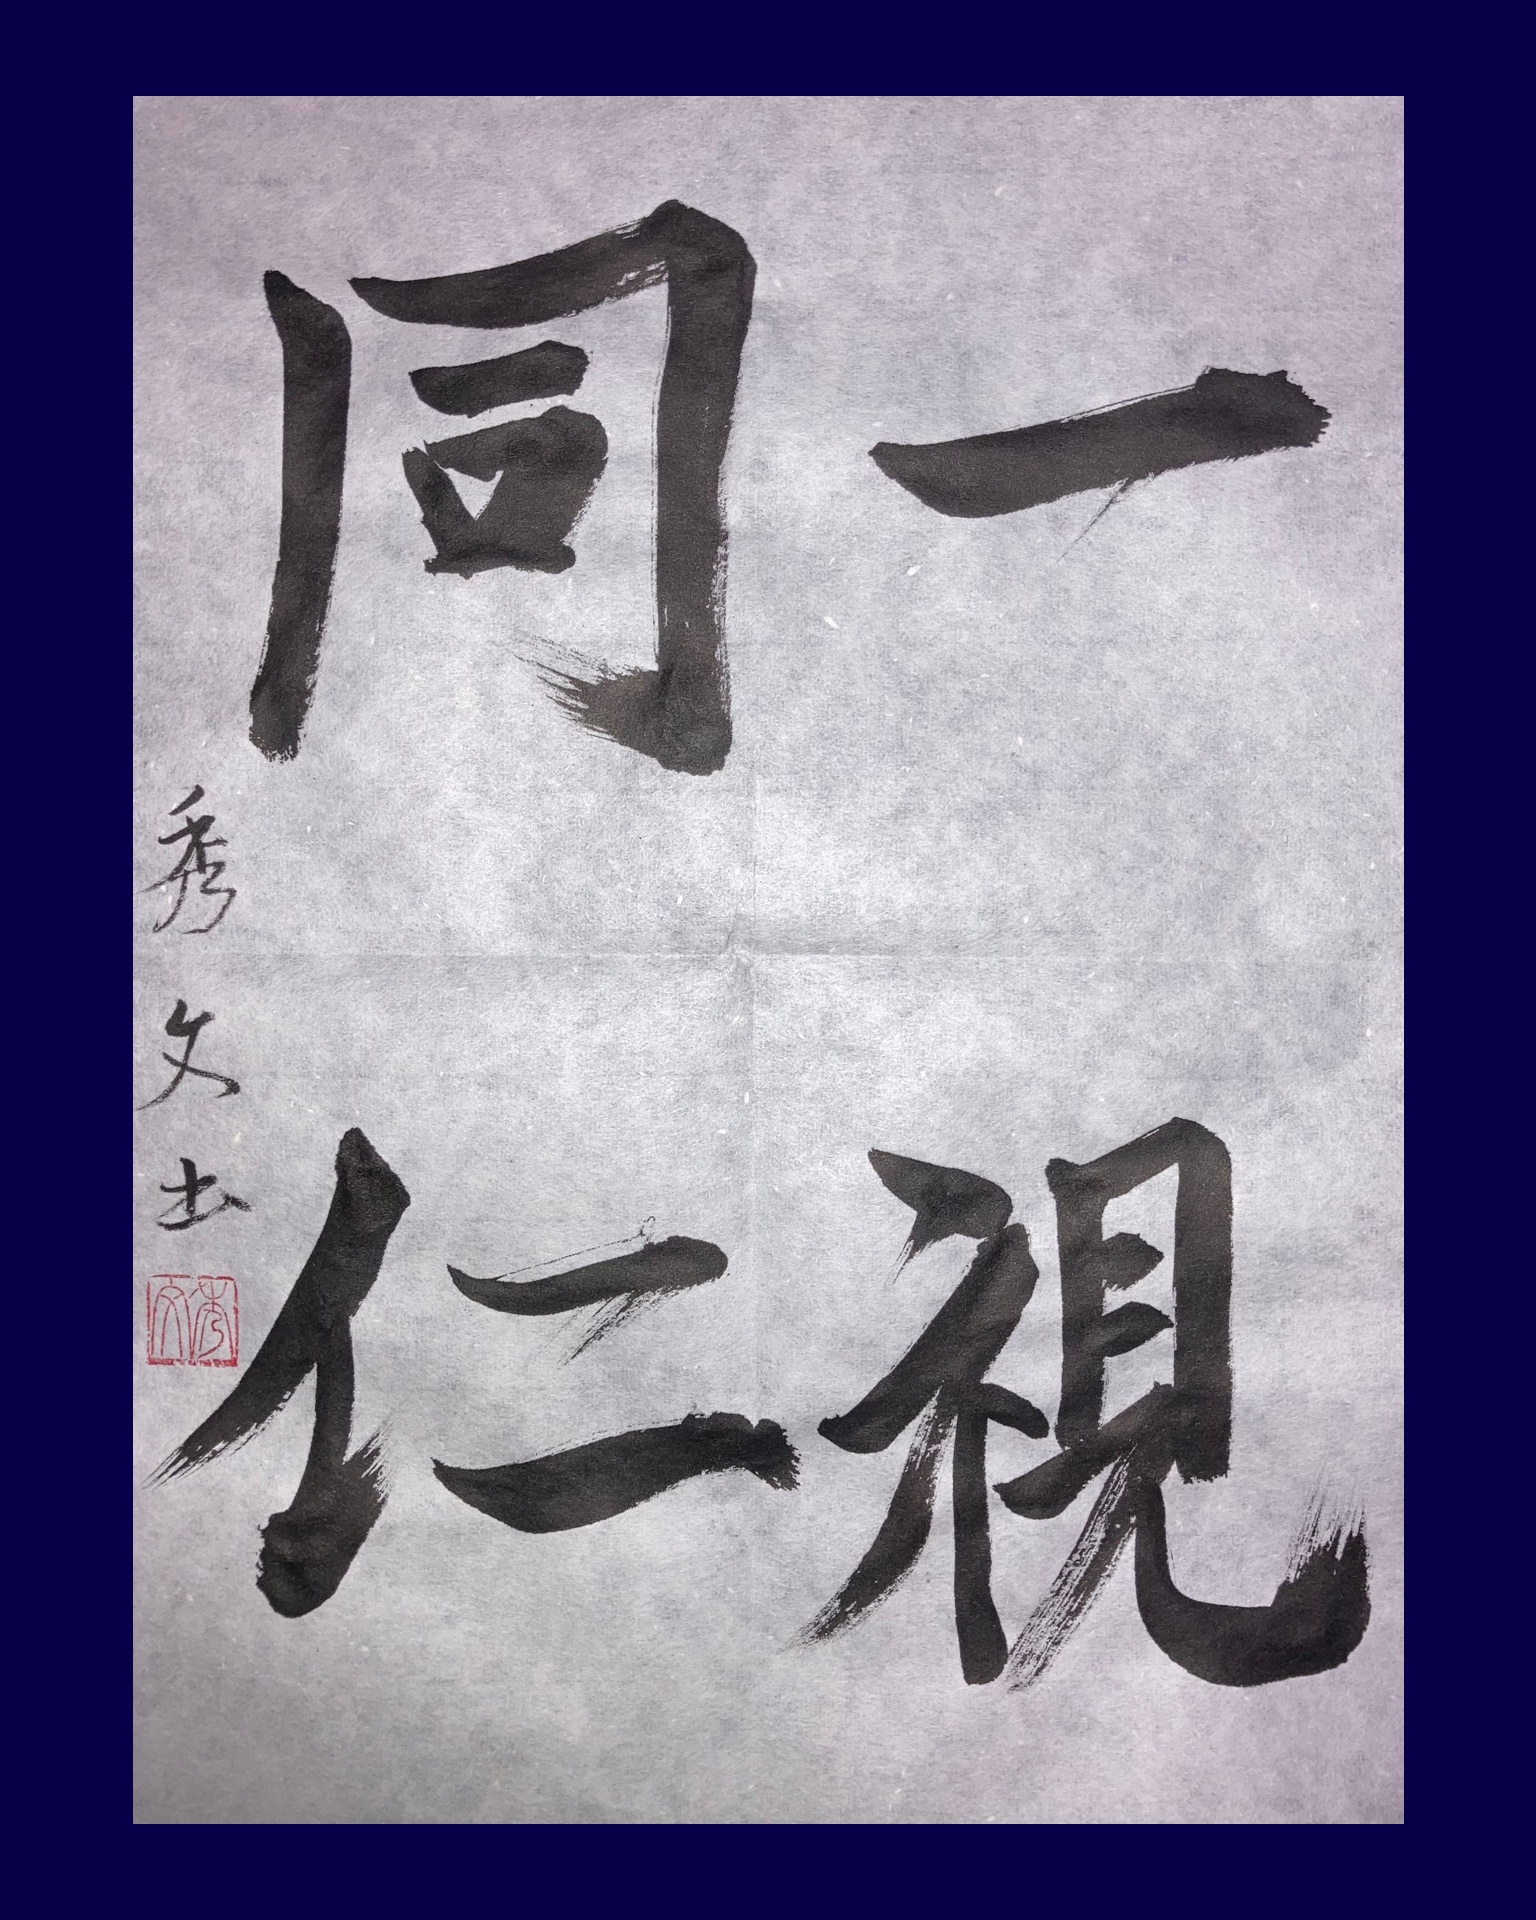 一視
同仁
秀文书
秀文